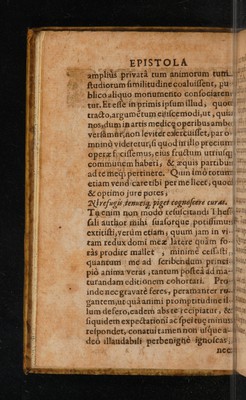 EPISTOLA
ampliùs privatâ tum animorum tum
studiorum similitudine coaluissent, pu
blico aliquo monumento consociaren
tur. Et esse in primis ipsum illud, quod
tracto, argumētum ejuscemodi, ut, qui
nos, dum in artis medicę operibus ambo
versāmur, non leviter exercuisset, par o-
mninò videretur, si quod in illo precium
operæ fecissemus, ejus fructum utriusq;
communem haberi, & æquis partibus
ad te meq; pertinere. Quin imò totum
etiam vendicare tibi per me licet, quod
& optimo jure potes,
Ni refugis, tenuesq, piget cognoscere curas.
Tu enim non modò resuscitandi
author mihi suasorque potissimus
extitisti, verùm etiam, quum jam in vi-
tam redux domi meæ latere quàm fo-
ràs prodire mallet, minimè cessasti,
quantum me ad scribendum princi-
piò anima veras, tantum posteà ad ma-
turandam editionem cohortari. Pro
inde nec gravatè feres, peramanter ro-
gantem, ut quâ animi promptitudine il-
lum defero, eadem abs te recipiatur, &
siquidem expectationi ac spei tuę minus
respondet, conatui tamen non usque a-
deò illaudabili perbenignè ignoscas,
nec